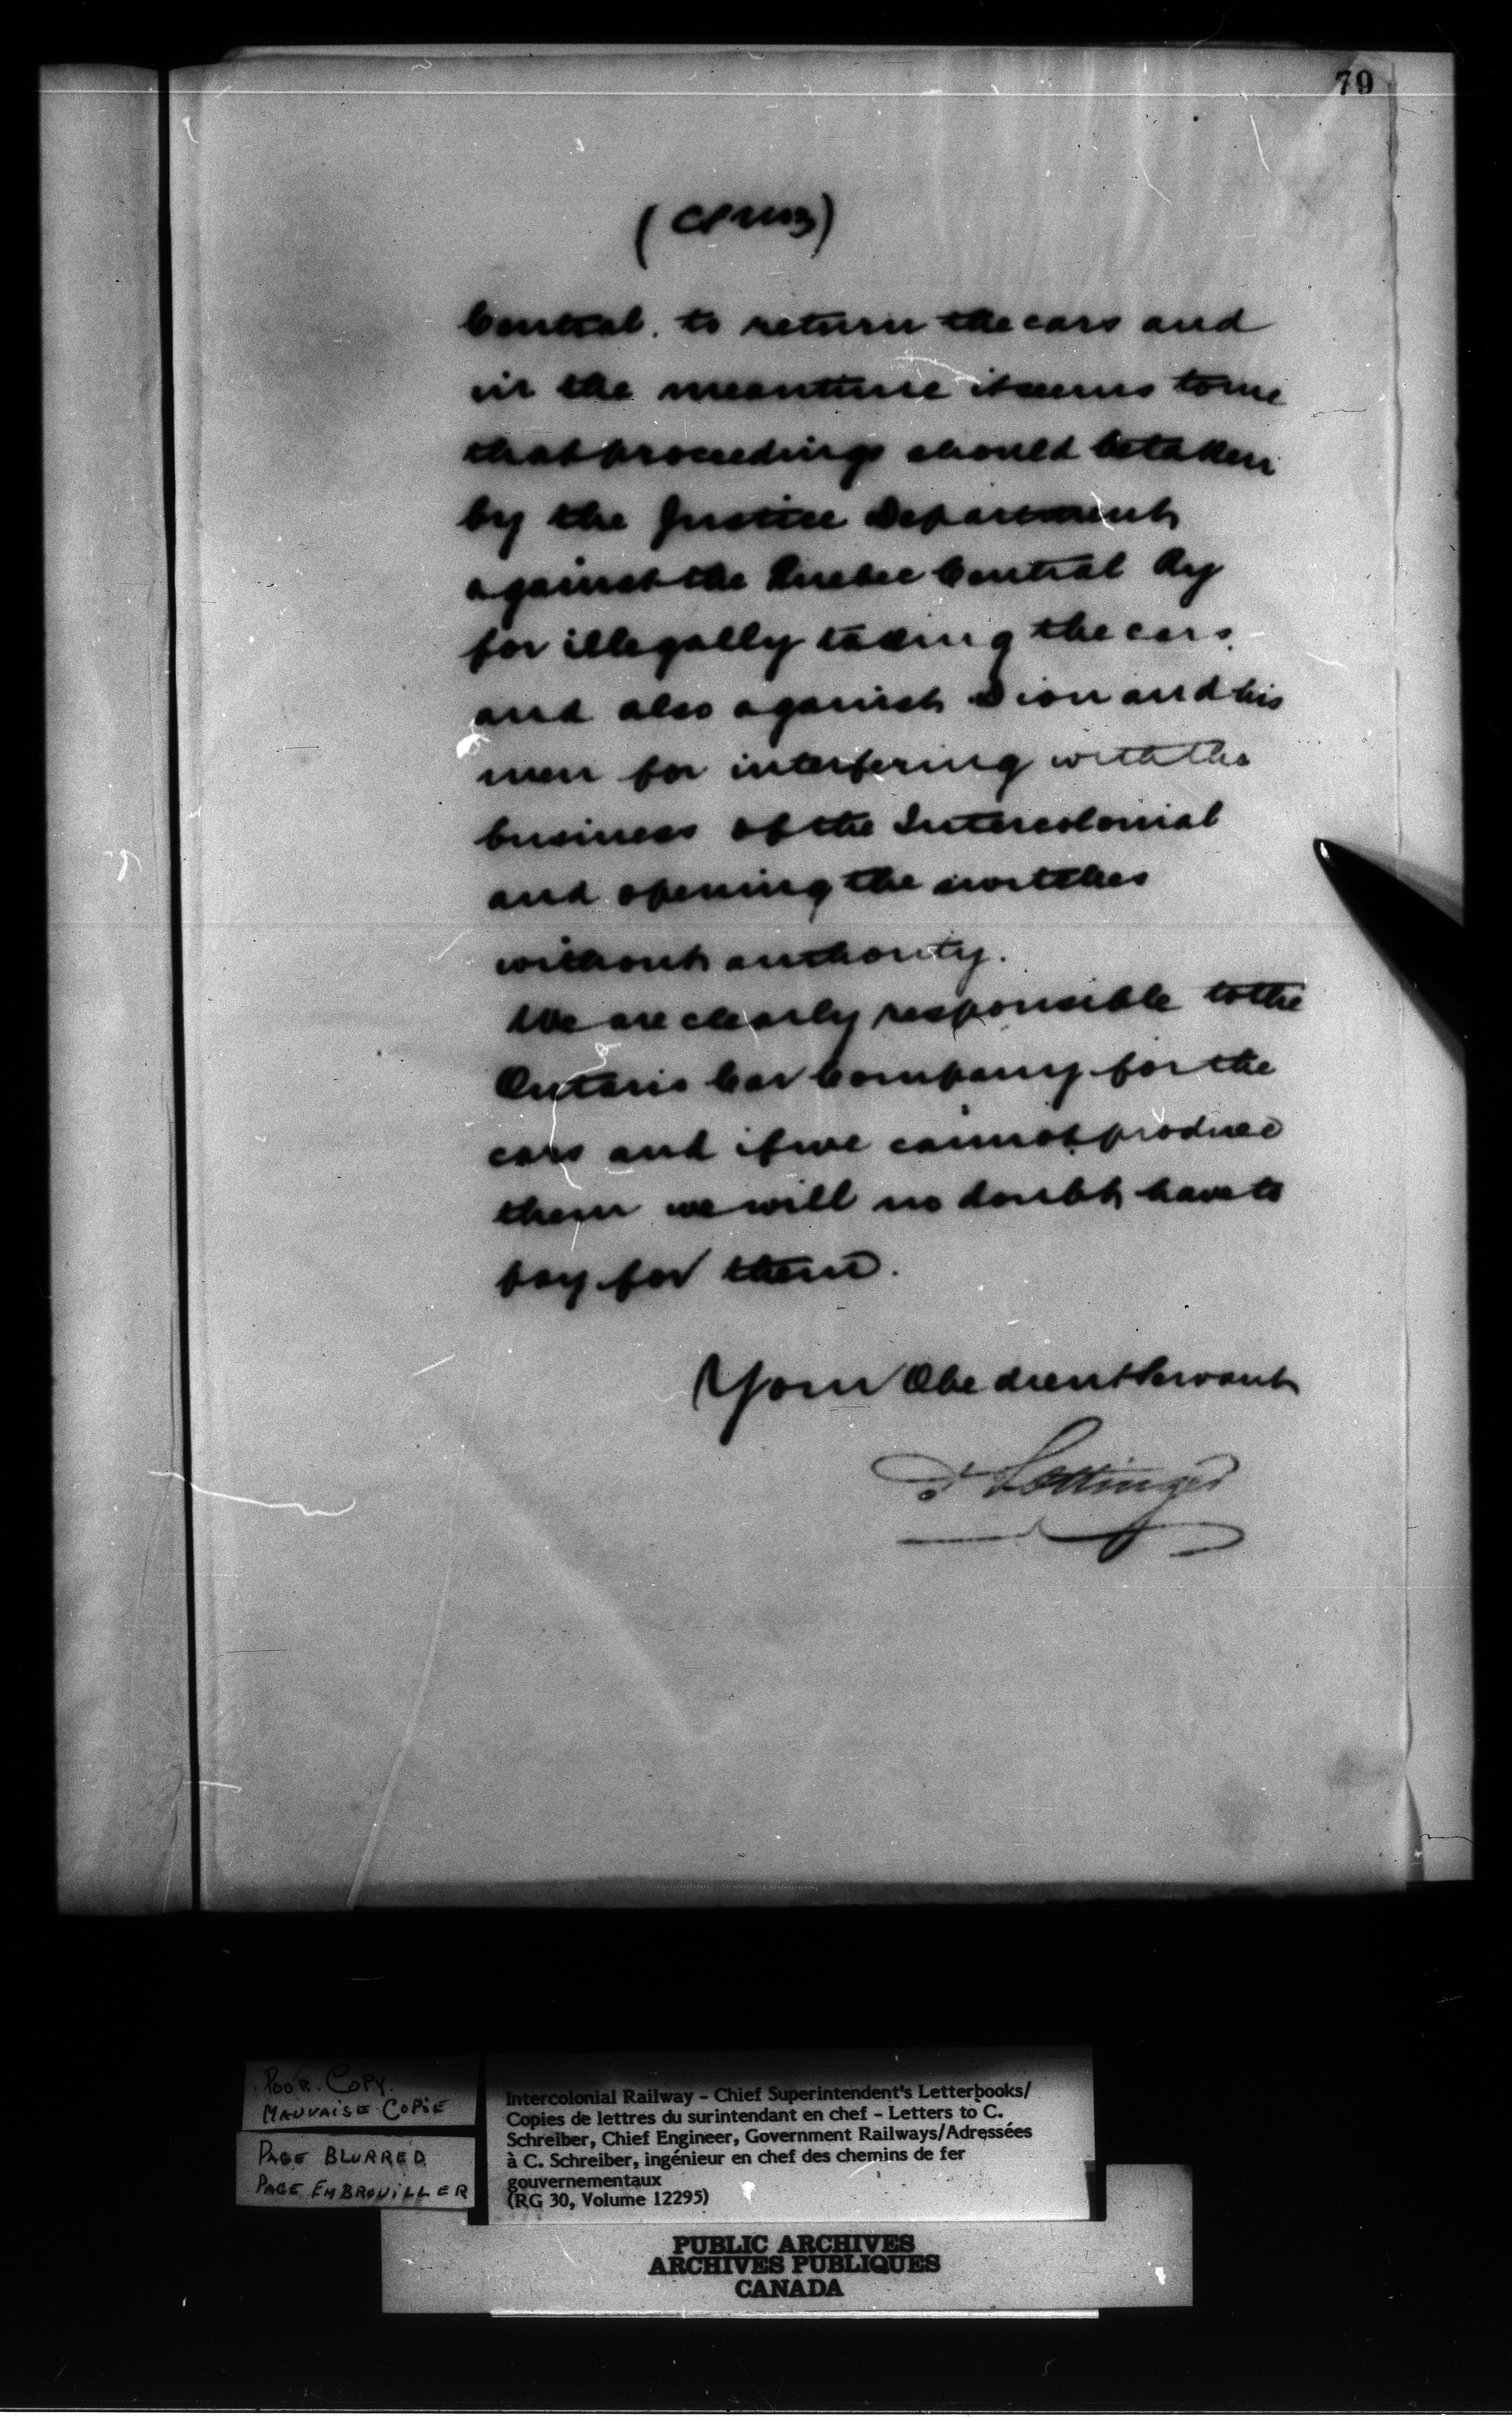 79
Central. to return the cars and
in the meantime it seems to me
that proceedings should be taken
by the Justice Department
against the Quebec Central Ry
for illegally taking the cars.
and also against Dion and his
men for interfering with the
business of the Intercolonial
and opening the switches
without authority.
We are clearly responsible to the
Ontario Car Company for the
cars and if we cannot produce
them we will no doubt have to
pay for them.
Your Obedient Servant
D Pottinger
POOR COPY.
MAUVAISE COPIE
PAGE BLURRED
PAGE EMBROUILLER
Intercolonial Railway - Chief Superintendent's Letterbooks/
Copies de lettres du surintendant en chef - Letters to C.
Schreiber, Chief Engineer, Government Railways/Adressées
à C. Schreiber, ingénieur en chef des chemins de fer
gouvernementaux
(RG 30, Volume 12295)
PUBLIC ARCHIVES
ARCHIVES PUBLIQUES
CANADA